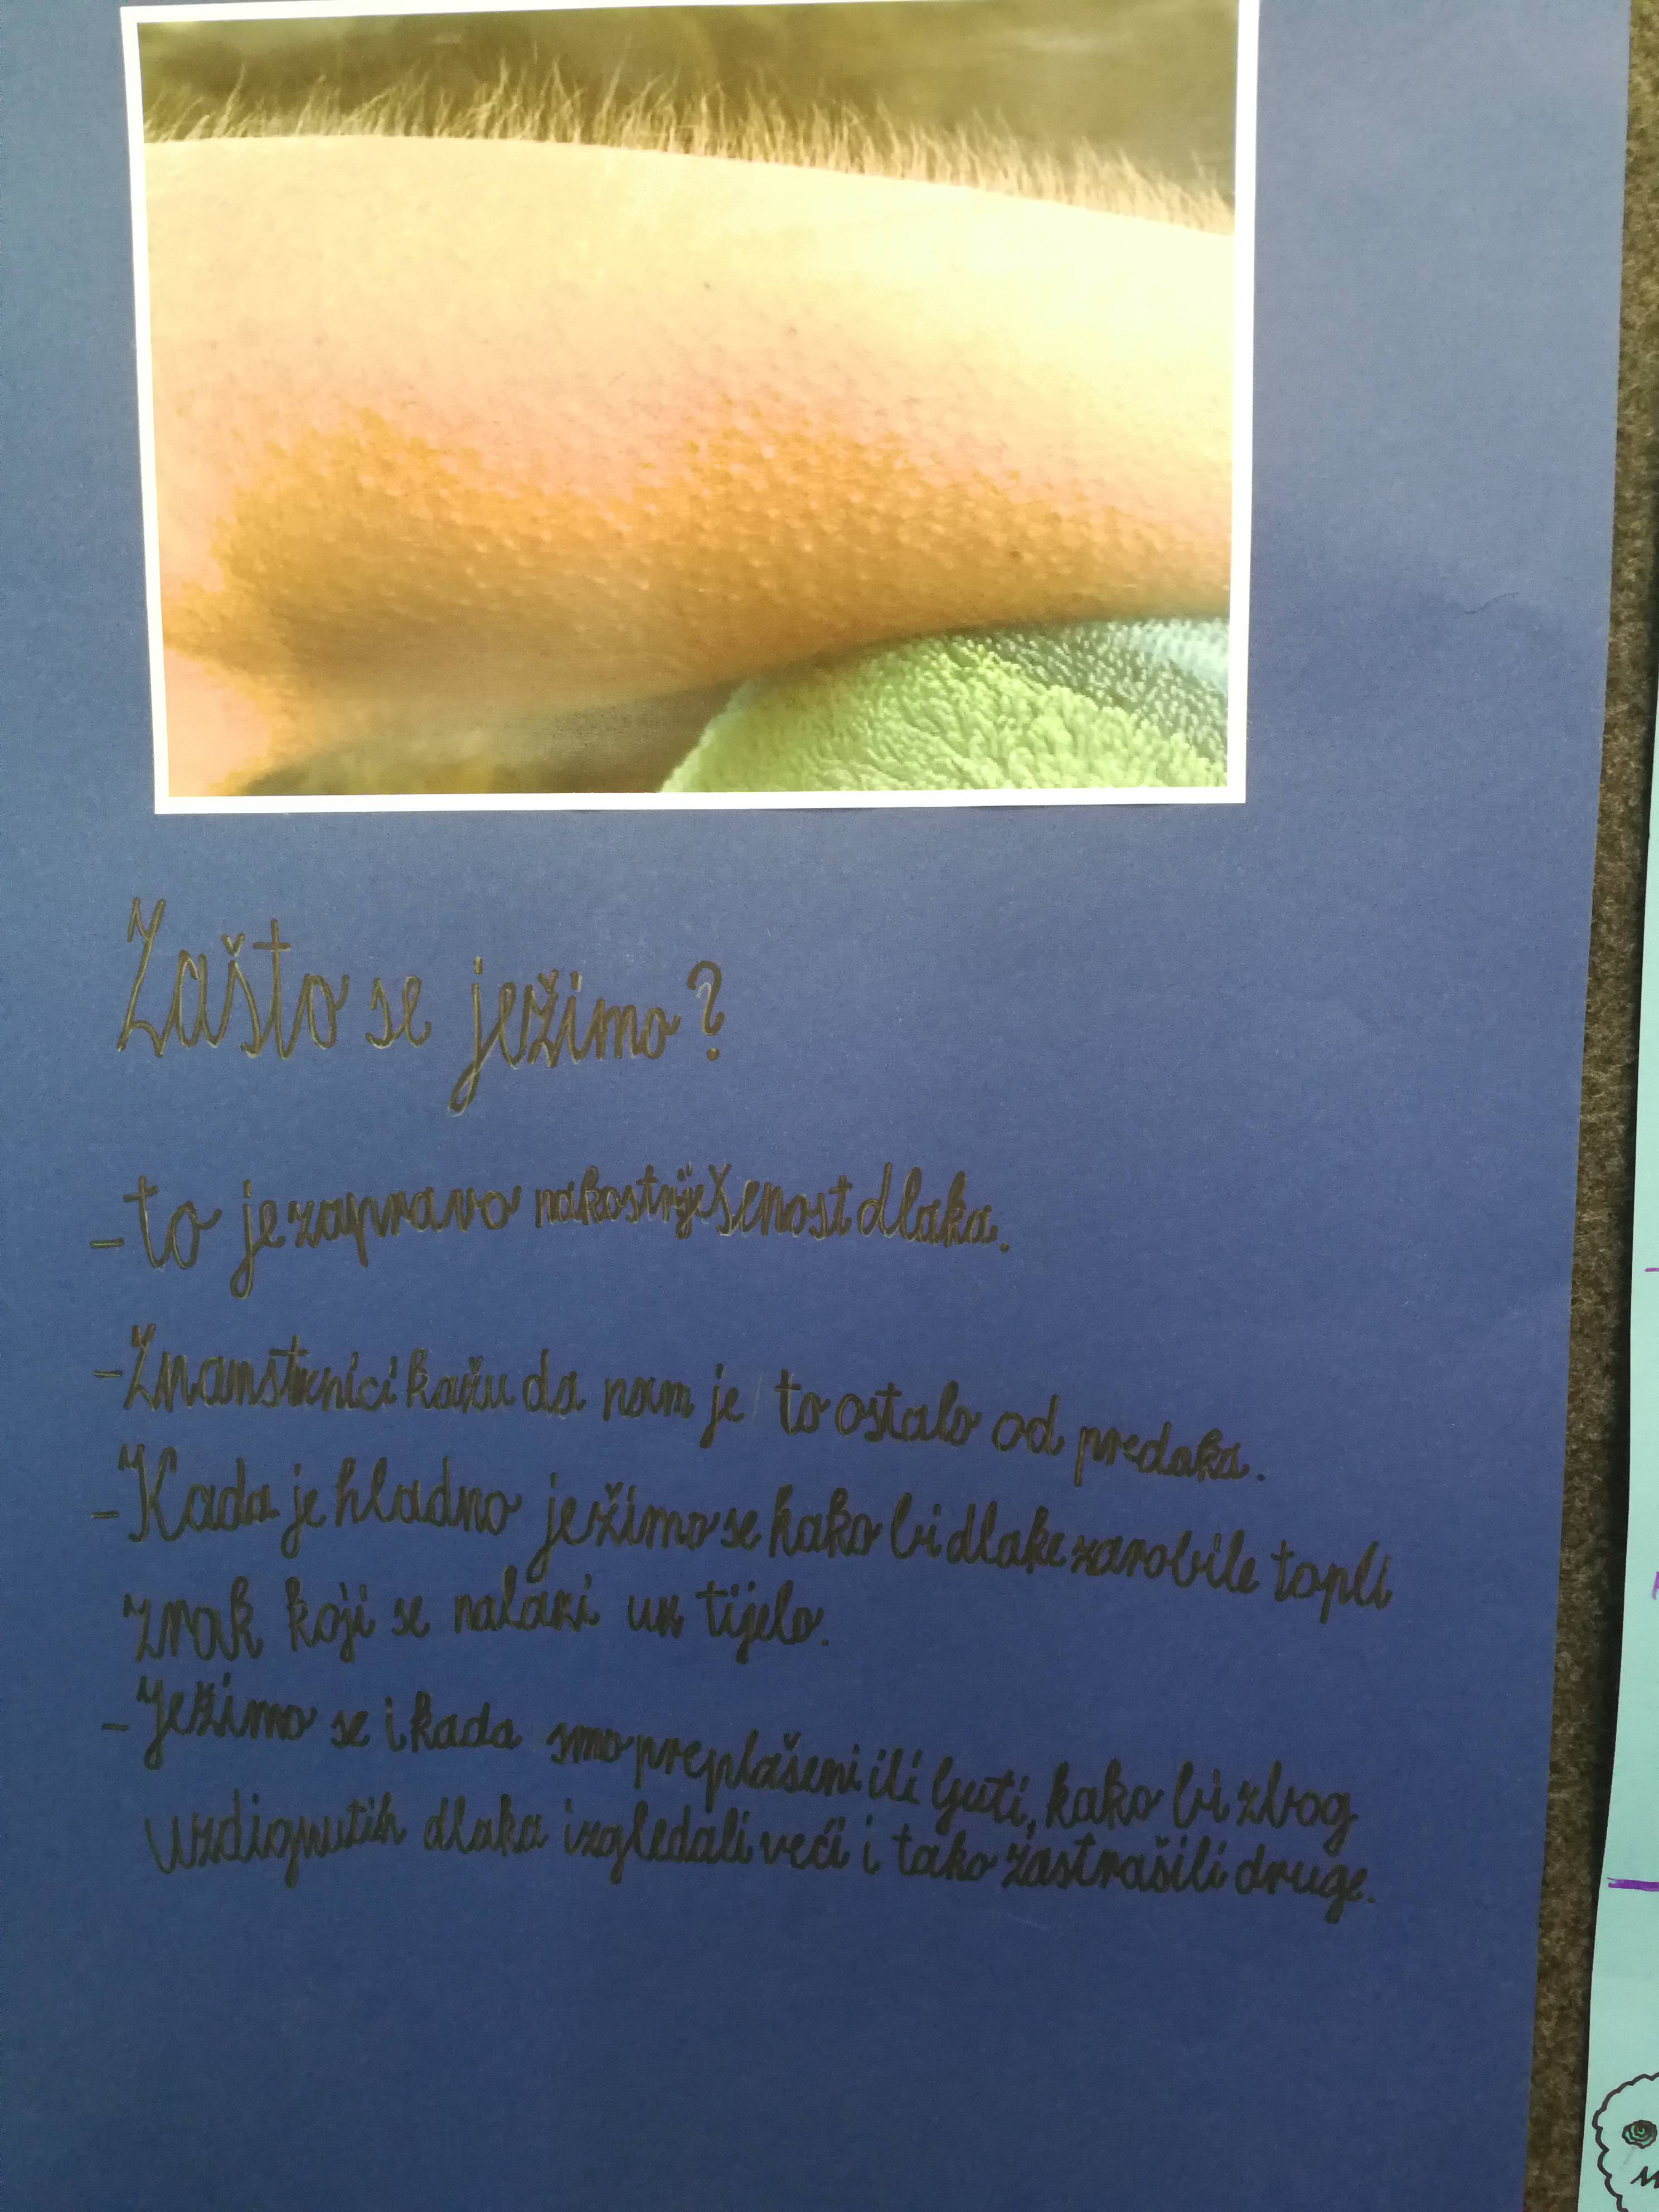 Zašto se ježimo?
- to je zapravo nakostriješenost dlaka.
- Znanstvenici kažu da nam je to ostalo od predaka.
- Kada je hladno ježimo se kako bi dlake zarobile topli
zrak koji se nalazi uz tijelo.
- Ježimo se i kada smo preplašeni ili ljuti, kako bi zbog
uzdignutih dlaka izgledali veći i tako zastrašili druge.